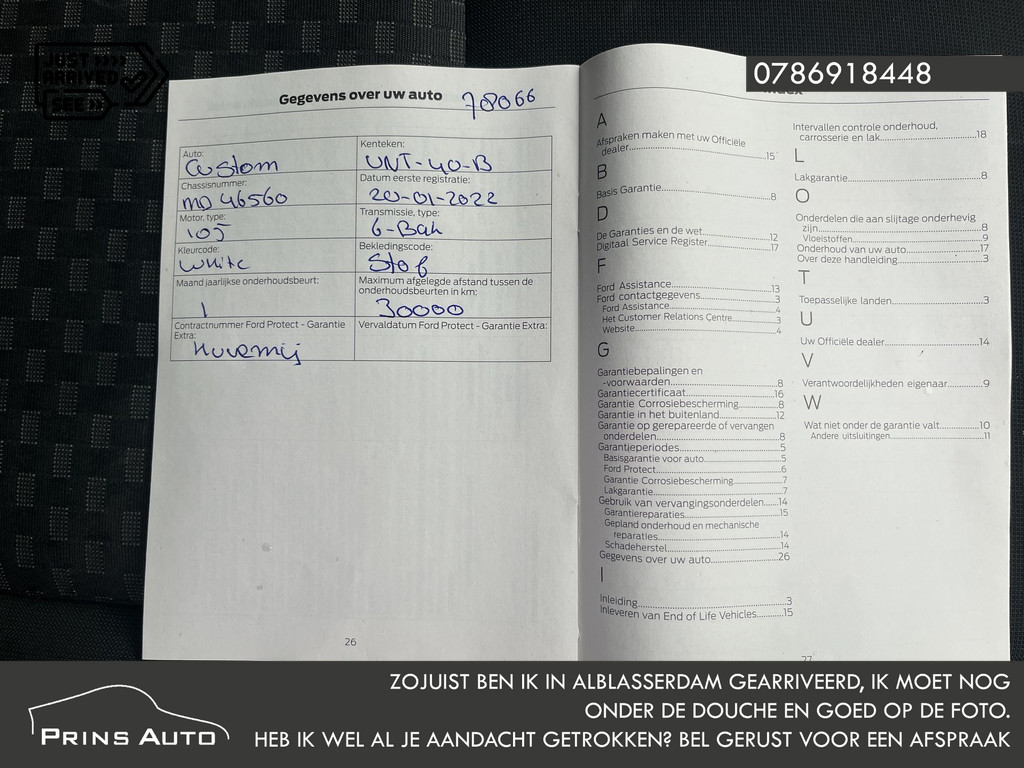 JUST
ARRIVED
SEE
0786918448
Gegevens over uw auto 78066
Auto: Kenteken:
Custom VNT-40-B
Chassisnummer: Datum eerste registratie:
MD 46560 20-01-2022
Motor, type: Transmissie, type:
105 6-Bak
Kleurcode: Bekledingscode:
White Stof
Maand jaarlijkse onderhoudsbeurt: Maximum afgelegde afstand tussen de
onderhoudsbeurten in km:
1 30000
Contractnummer Ford Protect - Garantie Vervaldatum Ford Protect - Garantie Extra:
Extra:
26
Index
A
Afspraken maken met uw Officiële
dealer....15
B
Basis Garantie....8
D
De Garanties en de wet....12
Digitaal Service Register....17
F
Ford Assistance....13
Ford contactgegevens....3
Ford Assistance....4
Het Customer Relations Centre....3
Website....4
G
Garantiebepalingen en
-voorwaarden....8
Garantiecertificaat....16
Garantie Corrosiebescherming....8
Garantie in het buitenland....12
Garantie op gerepareerde of vervangen
onderdelen....8
Garantieperiodes....5
Basisgarantie voor auto....5
Ford Protect....6
Garantie Corrosiebescherming....7
Lakgarantie....7
Gebruik van vervangingsonderdelen....14
Garantiereparaties....15
Gepland onderhoud en mechanische
reparaties....14
Schadeherstel....14
Gegevens over uw auto....26
I
Inleiding....3
Inleveren van End of Life Vehicles....15
Intervallen controle onderhoud,
carrosserie en lak....18
L
Lakgarantie....8
O
Onderdelen die aan slijtage onderhevig
zijn....8
Vloeistoffen....9
Onderhoud van uw auto....17
Over deze handleiding....3
T
Toepasselijke landen....3
U
Uw Officiële dealer....14
V
Verantwoordelijkheden eigenaar....9
W
Wat niet onder de garantie valt....10
Andere uitsluitingen....11
27
PRINS AUTO
ZOJUIST BEN IK IN ALBLASSERDAM GEARRIVEERD, IK MOET NOG
ONDER DE DOUCHE EN GOED OP DE FOTO.
HEB IK WEL AL JE AANDACHT GETROKKEN? BEL GERUST VOOR EEN AFSPRAAK